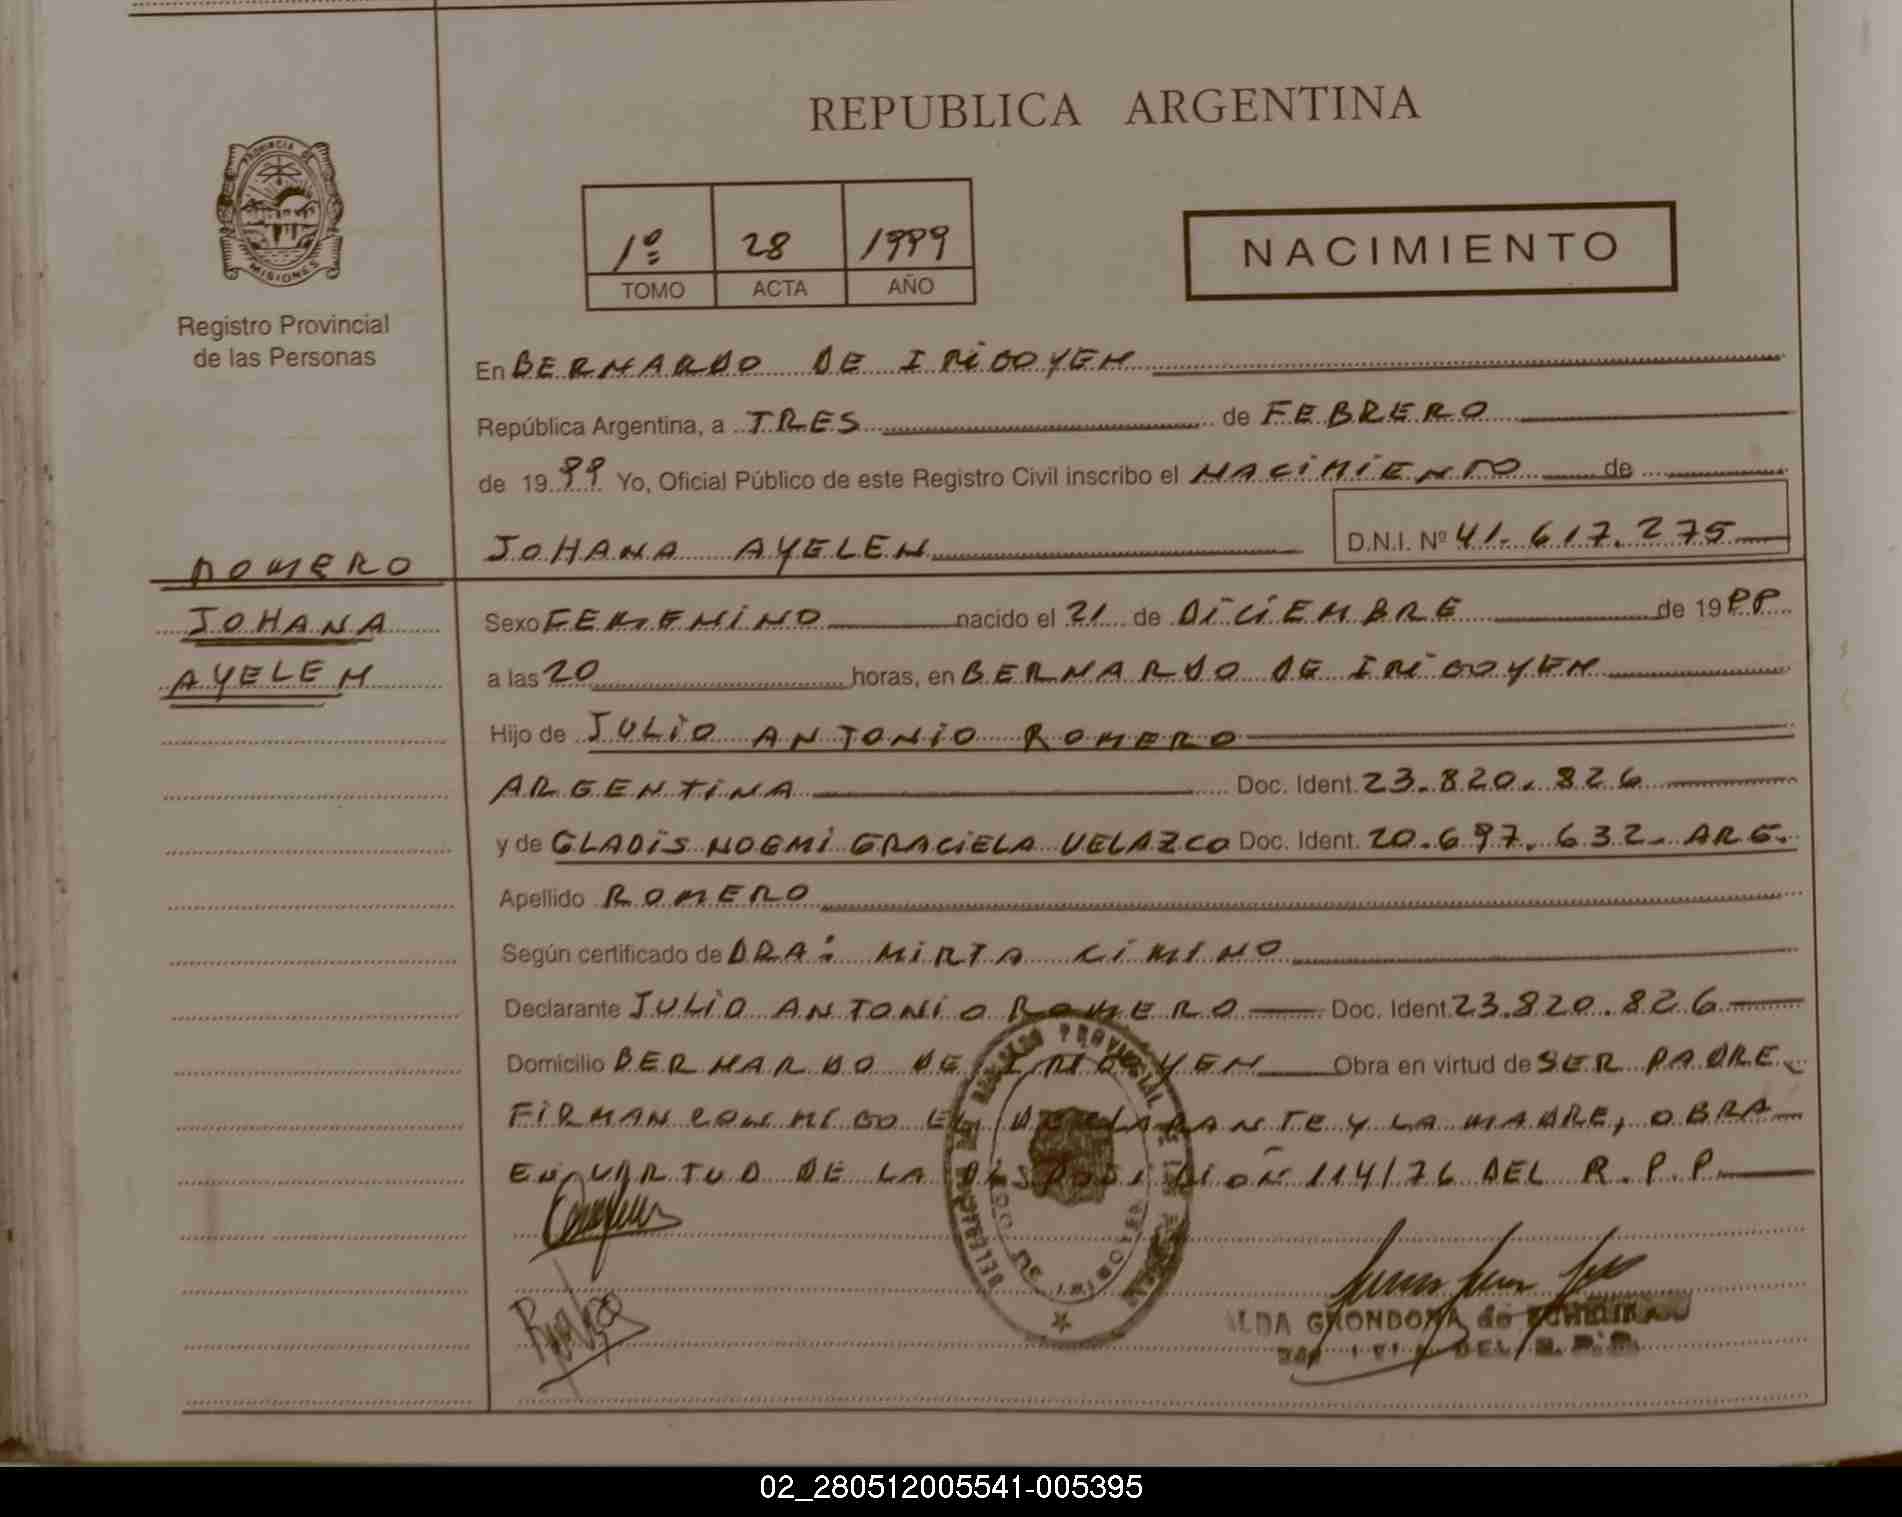 REPUBLICA ARGENTINA
PROVINCIA DE
MISIONES
Registro Provincial
de las Personas
1º 28 1999
TOMO ACTA AÑO
NACIMIENTO
En BERNARDO DE IRIGOYEN
República Argentina, a TRES de FEBRERO
de 1999 Yo, Oficial Público de este Registro Civil inscribo el NACIMIENTO de
JOHANA AYELEN D.N.I. Nº 41.617.275
ROMERO
JOHANA
AYELEN
Sexo FEMENINO nacido el 21 de DICIEMBRE de 19
a las 20 horas, en BERNARDO DE IRIGOYEN
Hijo de JULIO ANTONIO ROMERO
ARGENTINA Doc. Ident. 23.820.826
y de GLADIS NOEMI GRACIELA VELAZCO Doc. Ident. 20.697.632- ARG.
Apellido ROMERO
Según certificado de DRA: MIRTA CIMINO
Declarante JULIO ANTONIO ROMERO Doc. Ident. 23.820.826
Domicilio BERNARDO DE IRIGOYEN Obra en virtud de SER PADRE
FIRMAN CONMIGO EL DECLARANTE Y LA MADRE, OBRA
EN VIRTUD DE LA DISPOSICION 114/76 DEL R.P.P
GRONDONA de
DEL R.P.P.
02_280512005541-005395